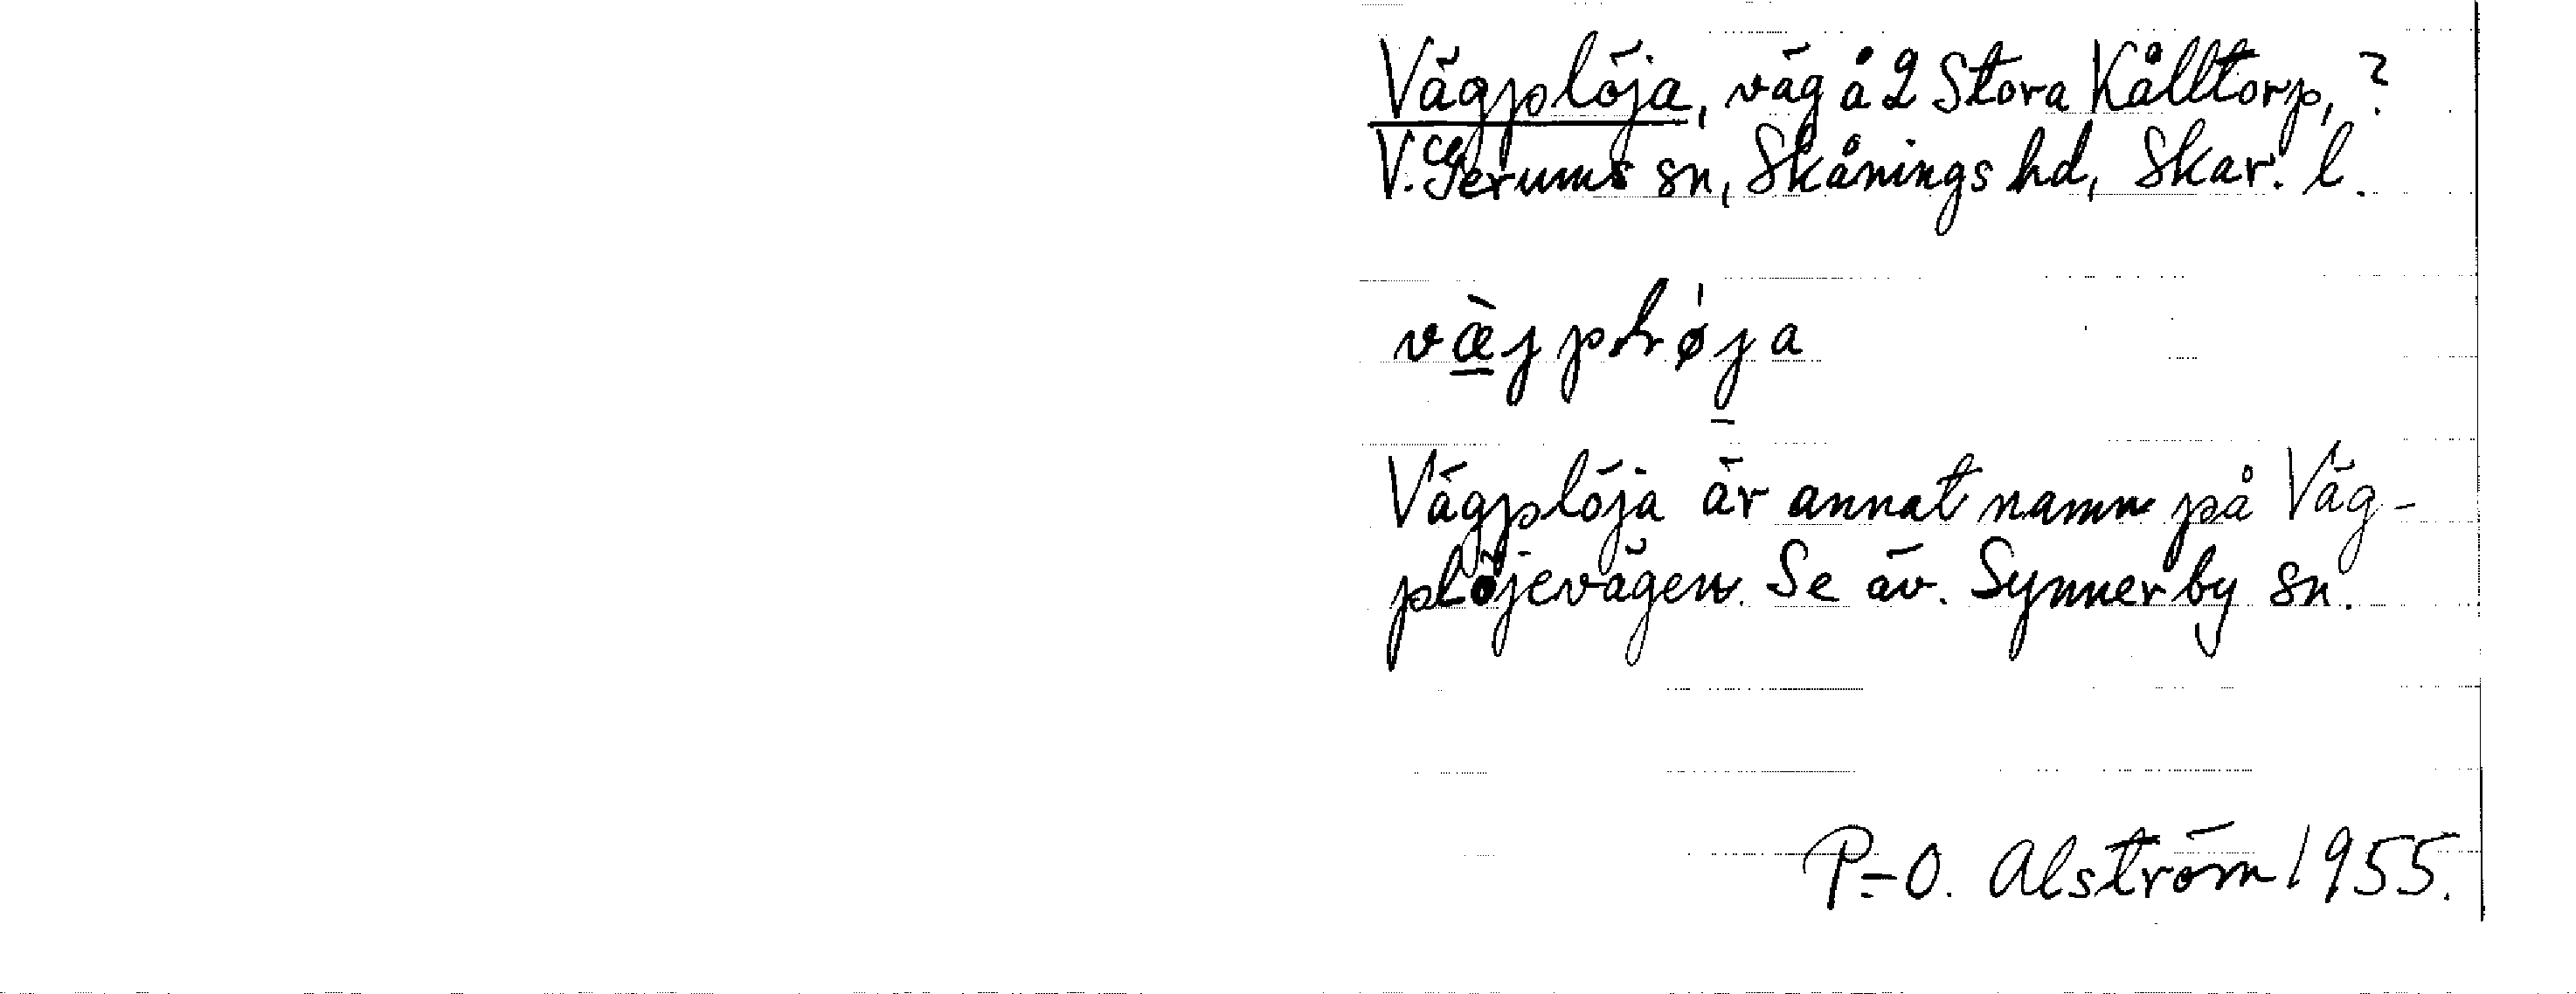 Vägplöja, väg å 2 Stora Kålltorp, ?
V. Gerums sn, Skånings hd, Skar. l.
Vägplöja är annat namn på Väg-
plöjevägen. Se äv. Synnerby sn.
P.-O. Alström 1955.